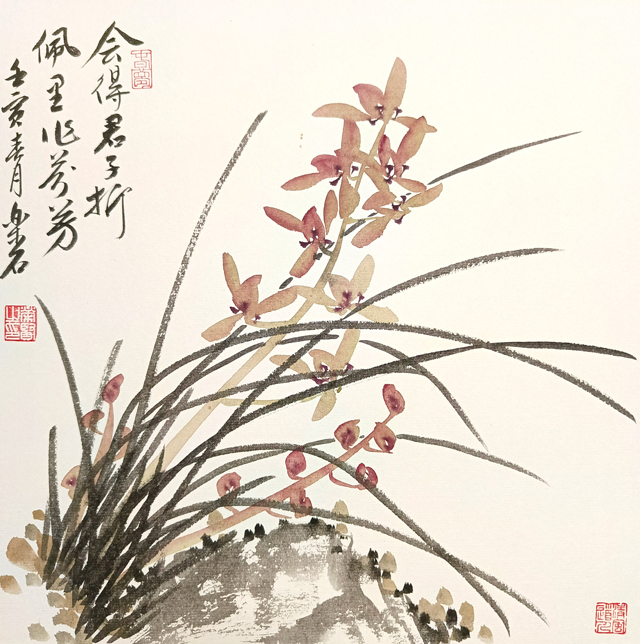 会得君子折
佩里作芬芳
壬寅春月 樂石